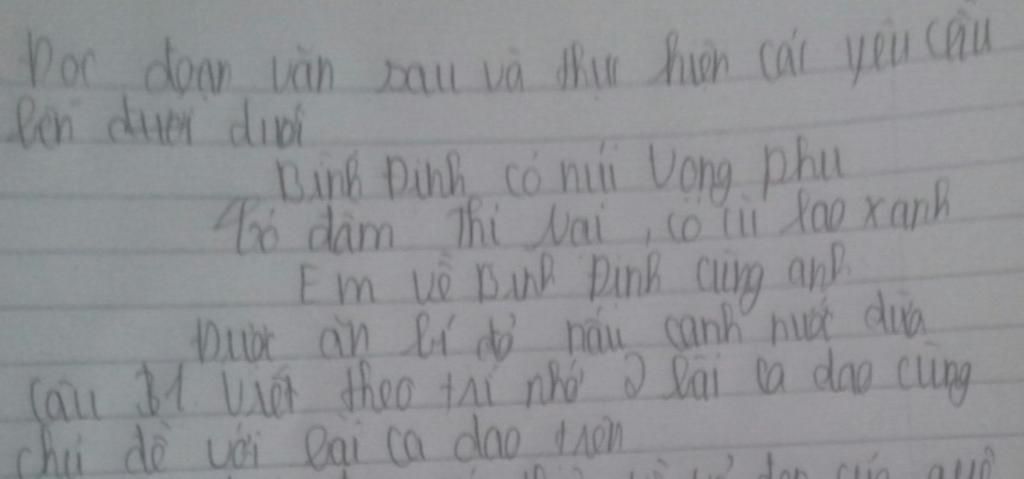 Đọc đoạn văn sau và thực hiện các yêu cầu
bên dưới
Bình Định có núi Vọng Phu
Có đầm Thị Nại, có cù lao xanh
Em về Bình Định cùng anh
Được ăn bí đỏ nấu canh nước dừa
Câu 1 Viết theo trí nhớ 2 bài ca dao cùng
chủ đề với bài ca dao trên